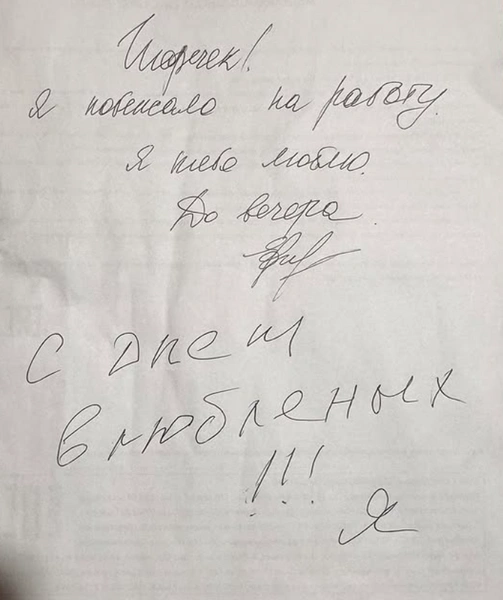 Я побежала на работу.
Я тебя люблю.
До вечера.
С Днем
влюбленых
!!!
Я